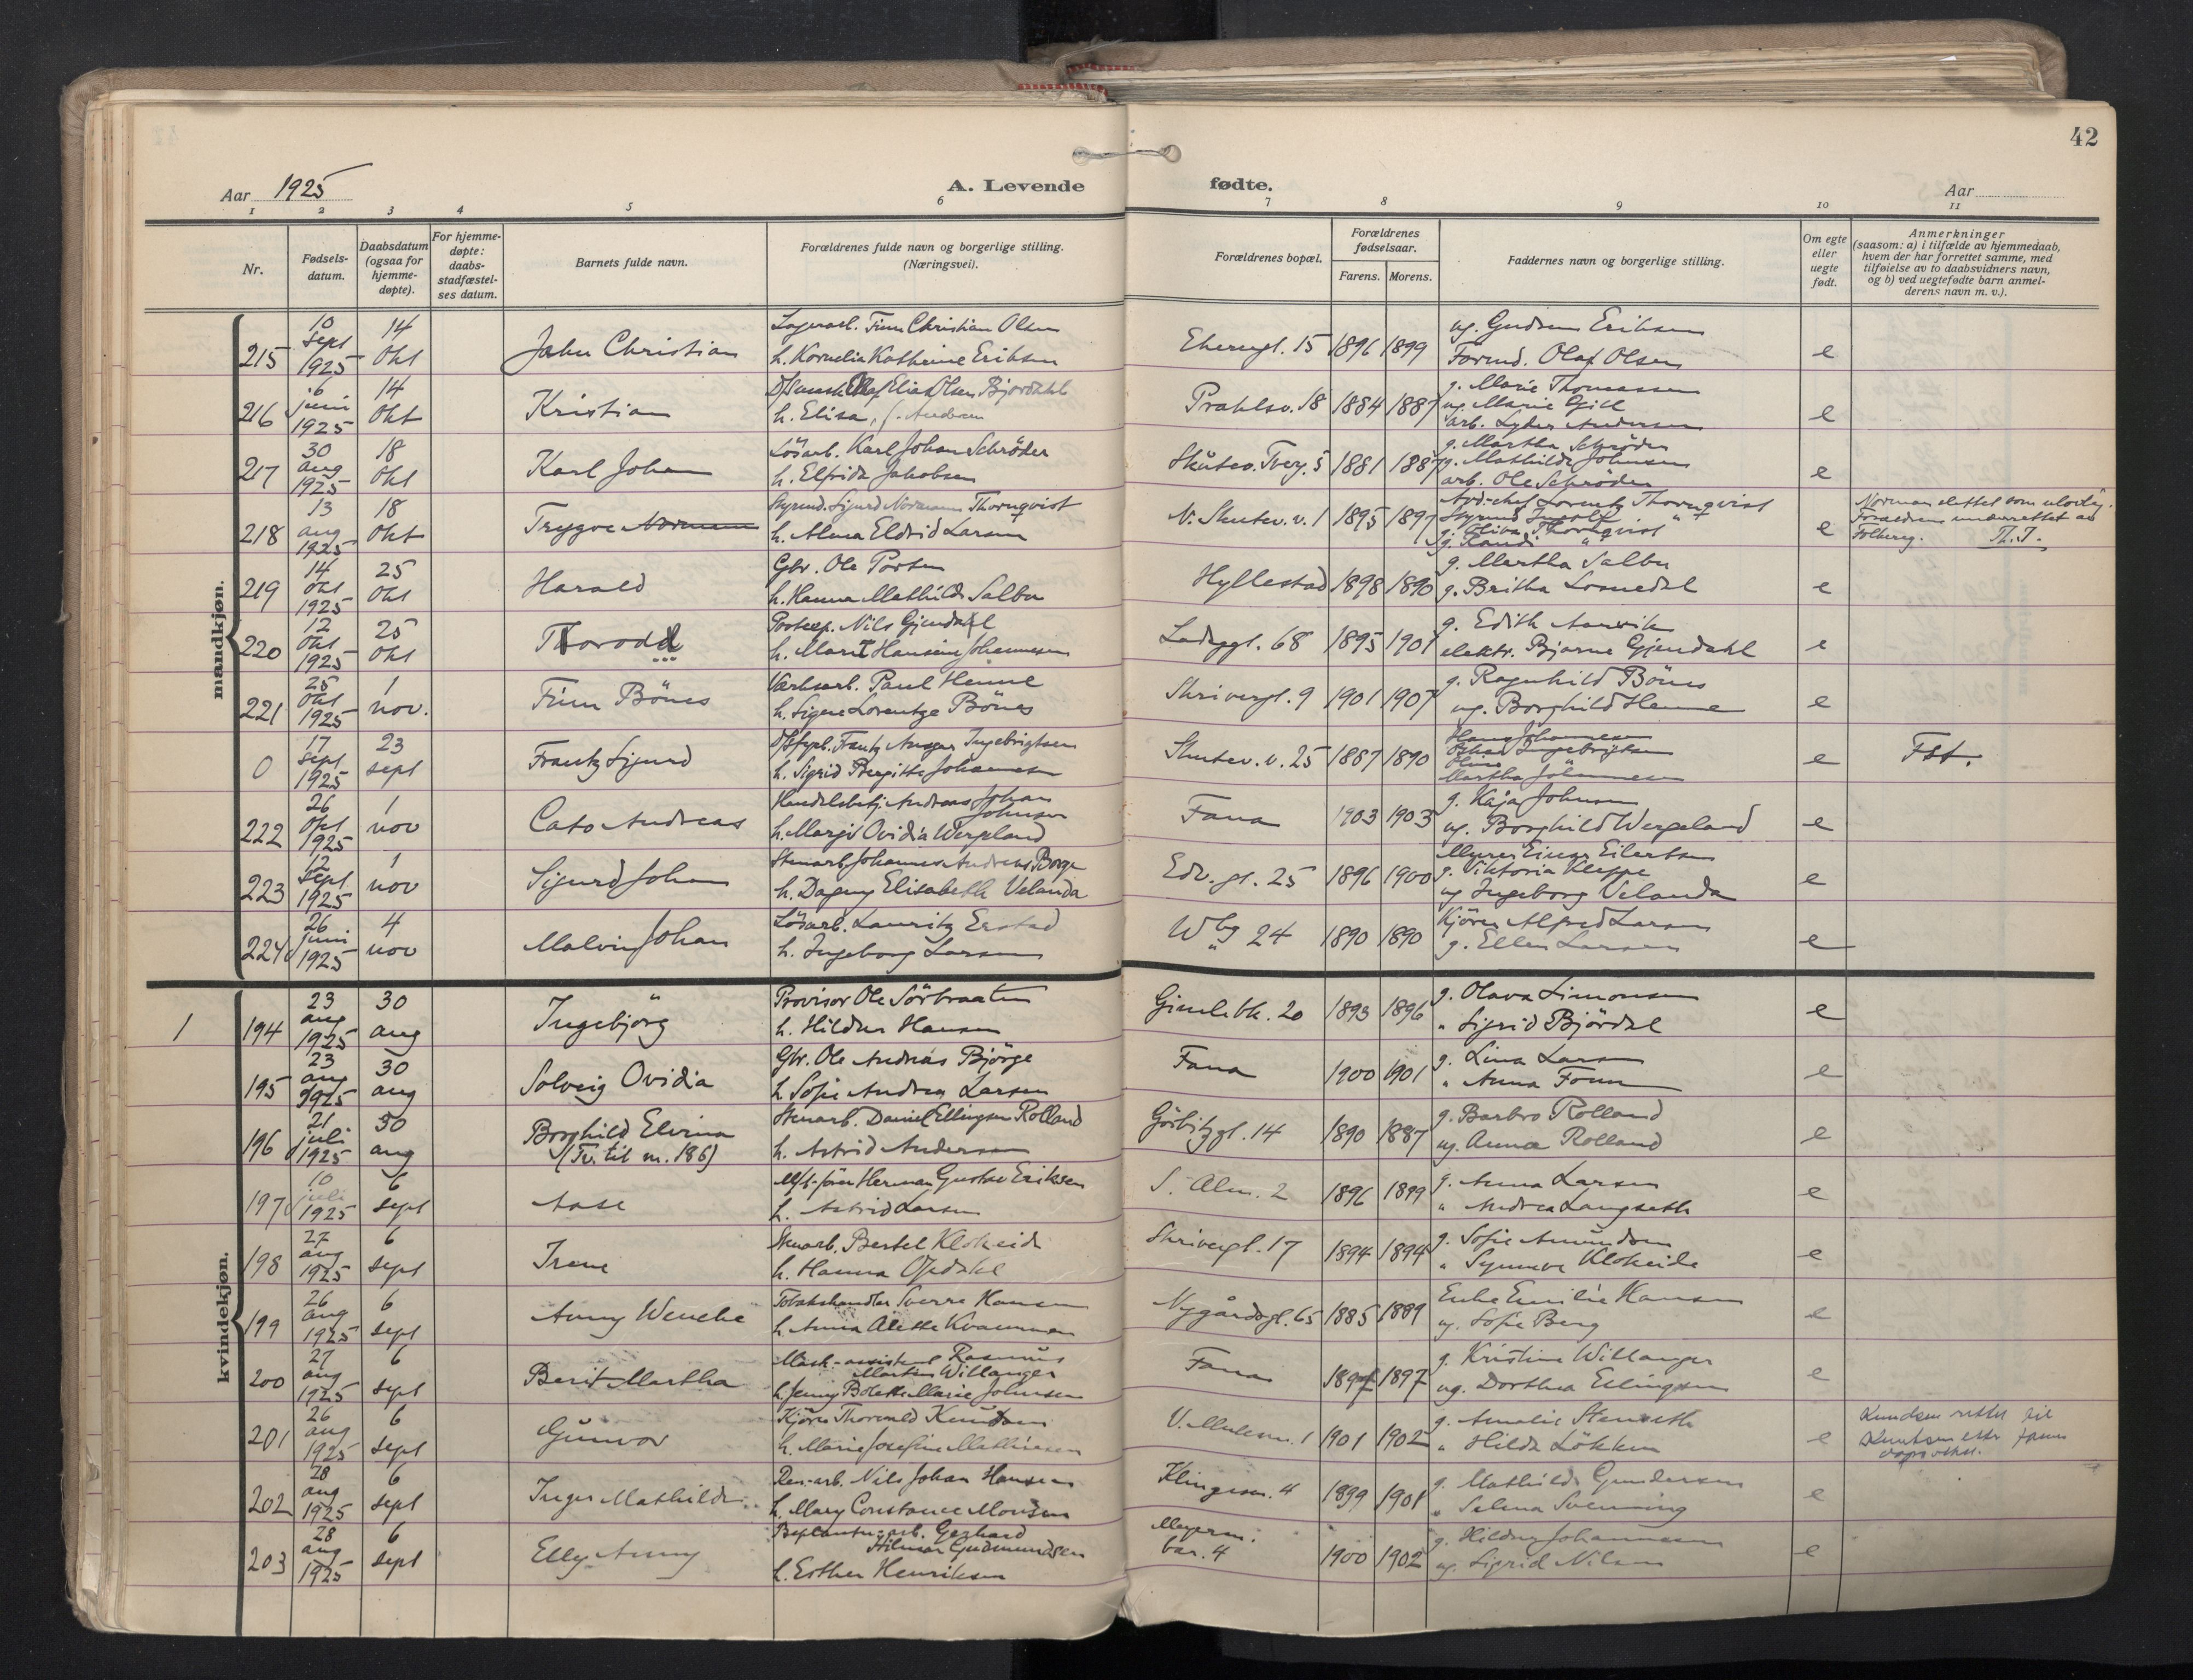 42
Aar 1925
A. Levende
fødte.
Aar
1 2 3 4 5 6 7 8 9 10 11
Nr.
Fødsels-
datum.
Daabsdatum
(ogsaa for
hjemme-
døpte).
For hjemme-
døpte:
daabs-
stadfæstel-
ses datum.
Barnets fulde navn.
Forældrenes fulde navn og borgerlige stilling.
(Næringsvei).
Forældrenes bopæl.
Forældrenes
fødselsaar.
Farens. Morens.
Faddernes navn og borgerlige stilling.
Om egte
eller
uegte
født.
Anmerkninger
(saasom: a) i tilfælde av hjemmedaab,
hvem der har forrettet samme, med
tilføielse av to daabsvidners navn,
og b) ved uegtefødte barn anmel-
derens navn m. v.).
mandkjøn.
215 10 Sept 1925 14 Okt John Christian
Lagerarb. Finn Christian Olsen
h. Kornelia Kathrine Eriksen
15 1896 1899
ug. Gudrun Eriksen
Formd. Olaf Olsen
e
216 6 juni 1925 14 Okt Kristian
Elias Olsen Bjordahl
h. Elisa, f. Andersen
Prahlsv. 18 1884 1887
g. Marie Thomassen
ug. Marie Gill
arb. Lyder Andersen
e
217 30 aug 1925 18 Okt Karl Johan
Lösarb. Karl Johan Schröder
h. Elfrida Jakobsen
Skutev. Tverg. 5 1881 1887
g. Martha Schröder
g. Mathilde Johnsen
arb. Ole Schröder
e
218 13 aug 1925 18 Okt Trygve Norman
Styrmd. Sigurd Normann Thornqvist
h. Alma Eldrid Larsen
N. Skutev. v. 1 1895 1897
Lorentz Thornqvist
Styrmd.
Oliva Thornqvist
g. Randi "
e
Norman slettet som ulovlig.
Forældrene underrettet av
Folkereg. Th. J.
219 14 Okt 1925 25 Okt Harald
Gbr. Ole
h. Hanna Mathilde Salbu
Hyllestad 1898 1890
g. Martha Salbu
g. Britha Losnedal
e
220 12 Okt 1925 25 Okt Thorodd
Postexp. Nils Gjendahl
h. Marit Hansine Johannesen
Ladeggt. 68 1895 1901
g. Edith Aarvik
elektr. Bjarne Gjendahl
e
221 25 Okt 1925 1 nov. Finn Bönes
Verksarb. Paul Henne
h. Signe Lorentze Bönes
Skrivergt. 9 1901 1907
g. Ragnhild Bönes
ug. Borghild Henne
e
0 17 Sept 1925 23 sept Frantz Sigurd
Frantz Ansgar Ingebrigtsen
h. Sigrid Bergitte Johannesen
Skutev. v. 25 1887 1890
Hans Johannesen
Oskar Ingebrigtsen
Oline "
Martha Johannesen
e
Fst.
222 26 Okt 1925 1 nov Cato Andreas
Handelsbetj. Andreas Johan
Johnsen
h. Margit Ovidia Wergeland
Fana 1903 1903
g. Kaja Johnsen
ug. Borghild Wergeland
e
223 12 Sept 1925 1 nov Sigurd Johan
Stenarb. Johannes Andreas Borge
h. Dagny Elisabeth Velanda
Edv. gt. 25 1896 1900
Murer Einar Eilertsen
g. Viktoria Kleppe
ug Ingeborg Velanda
e
224 26 juni 1925 4 nov Malvin Johan
Lösarb. Lauritz Erstad
h. Ingeborg Larsen
Wbg 24 1890 1890
Kjörer Alfred Larsen
g. Ellen Larsen
e
kvindekjøn.
1
194 23 aug 1925 30 aug Ingebjörg
Provisor Ole Sörbraaten
h. Hildur Hansen
Gimlebk. 20 1893 1896
g. Olava Simonsen
" Sigrid Björdal
e
195 23 aug 1925 30 aug Solveig Ovidia
Gbr. Ole Andreas Björge
h. Sofie Andrea Larsen
Fana 1900 1901
g. Lina Larsen
" Anna
e
196 21 juli 1925 30 aug Borghild Elvina
(Tv. til m. 186)
Stenarb. Daniel Ellingsen Rolland
h. Astrid Andersen
Görbitzgt. 14 1890 1887
g. Barbro Rolland
ug. Anna Rolland
e
197 10 juli 1925 6 sept Aase
Herman Gustav Eriksen
h. Astrid Larsen
S. Alm. 2 1896 1899
g. Anna Larsen
" Andrea Langseth
e
198 27 aug 1925 6 sept Irene
Stenarb. Bertel Klokeide
h. Hanna Opdahl
Skrivergt. 17 1894 1894
g. Sofie Amundsen
" Synneve Klokeide
e
199 26 aug 1925 6 sept Anny Wenche
Tobakshandler Sverre Hansen
h. Anna Alette Kvammen
Nygårdsgt. 65 1885 1889
Enke Emilie Hansen
ug. Sofie Berg
e
200 27 aug 1925 6 sept Berit Martha
Mask-assistent Rasmus
Martin Willanger
h. Jenny Bolette Marie Johnsen
Fana 1897 1897
g. Kristine Willanger
ug. Dorthea Ellingsen
e
201 26 aug 1925 6 sept Gunvor
Kjörer Thorvald Knutsen
h. Marie Josefine Mathiesen
1 1901 1902
g. Amalie
" Hilda Lökken
e
Knudsen rettet til
Knutsen efter
202 28 aug 1925 6 sept Inger Mathilde
Ren-arb. Nils Johan Hansen
h. Mary Constance Monsen
Klingesm. 4 1899 1901
g. Mathilde Gundersen
" Selma Svenning
e
203 28 aug 1925 6 sept Elly Anny
Gerhard
Hilmar Gudmundsen
h. Esther Henriksen
Meyerm.
bar. 4 1900 1902
g. Hildur Johannessen
ug. Sigrid Nilsen
e